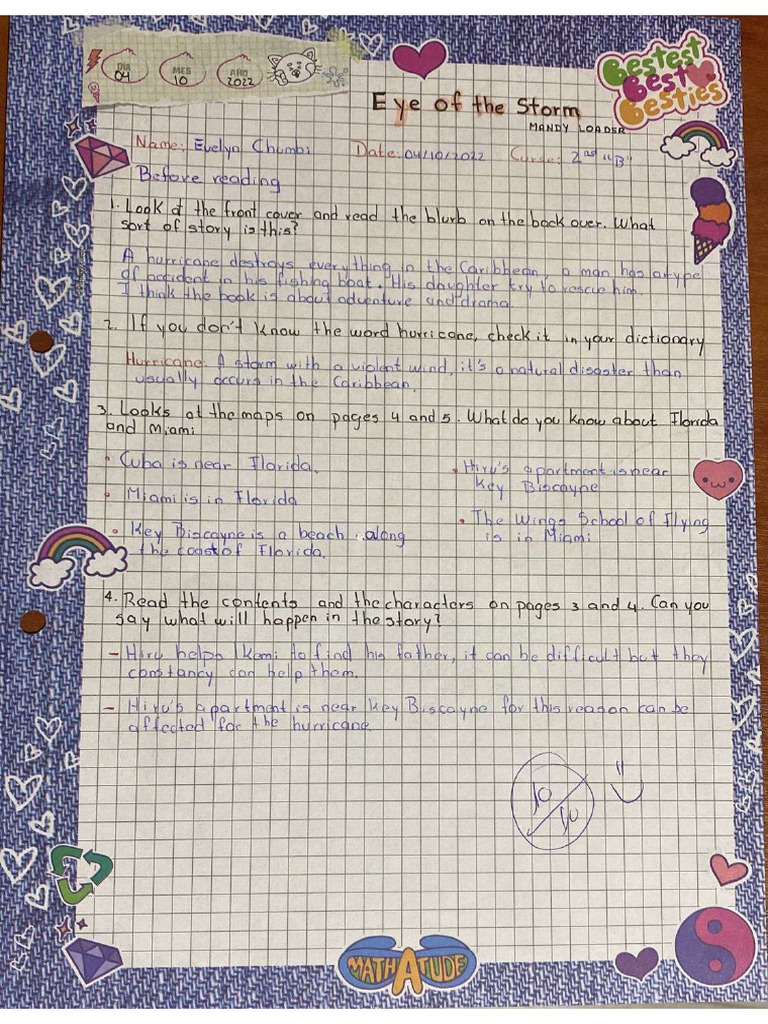 DIA MES AÑO
04 10 2022
Bestest
Best
Besties
Eye of the Storm
MANDY LOADER
Name: Evelyn Chumbi Date: 04/10/2022 Curse: 2as "B"
Before reading
1. Look at the front cover and read the blurb on the back over. What
sort of story is this?
A hurricane destroys everything in the Caribbean, a man has a type
of accident in his fishing boat. His daughter try to rescue him.
I think the book is about adventure and drama.
2. If you don't know the word hurricane, check it in your dictionary
Hurricane: A storm with a violent wind, it's a natural disaster than
usually occurs in the Caribbean.
3. Looks at the maps on pages 4 and 5. What do you know about Florida
and Miami
• Cuba is near Florida.
• Miami is in Florida
• Key Biscayne is a beach along
the coast of Florida.
• Hiru's apartment is near
Key Biscayne
• The Wings School of Flying
is in Miami
4. Read the contents and the characters on pages 3 and 4. Can you
say what will happen in the story?
- Hiru helps Ikemi to find his father, it can be difficult but they
constancy can help them.
- Hiru's apartment is near Key Biscayne for this reason can be
affected for the hurricane.
10/10
MATHATUDE